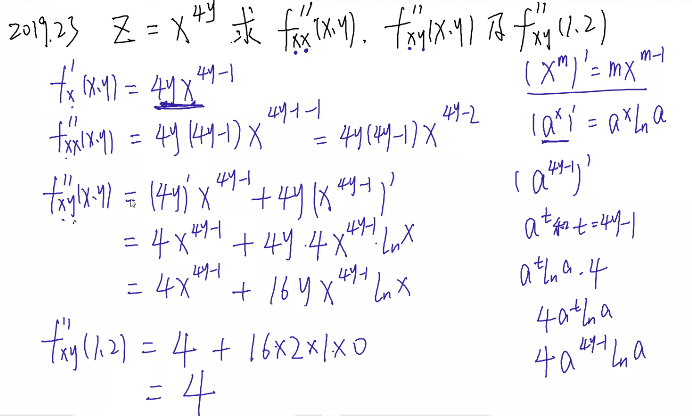 2019.23 Z = x^{4y} 求 f''_{xx}(x,y), f''_{xy}(x,y) 及 f''_{xy}(1,2)
f'_x(x,y) = 4yx^{4y-1}
f''_{xx}(x,y) = 4y(4y-1)x^{4y-1-1} = 4y(4y-1)x^{4y-2}
f''_{xy}(x,y) = (4y)'x^{4y-1} + 4y(x^{4y-1})'
= 4x^{4y-1} + 4y·4x^{4y-1}·ln x
= 4x^{4y-1} + 16yx^{4y-1} ln x
f''_{xy}(1,2) = 4 + 16×2×1×0
= 4
(x^m)' = mx^{m-1}
(a^x)' = a^x ln a
(a^{4y-1})'
a^t 和 t=4y-1
a^t ln a·4
4a^t ln a
4a^{4y-1} ln a